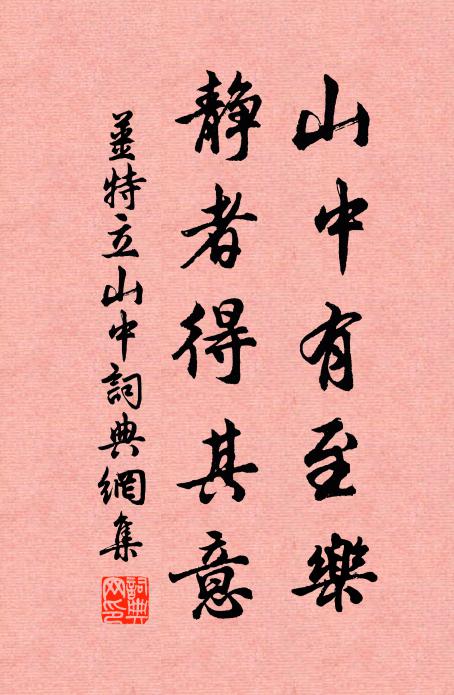 山中有至樂
静者得其意
姜特立山中詞典網集
詞典網印